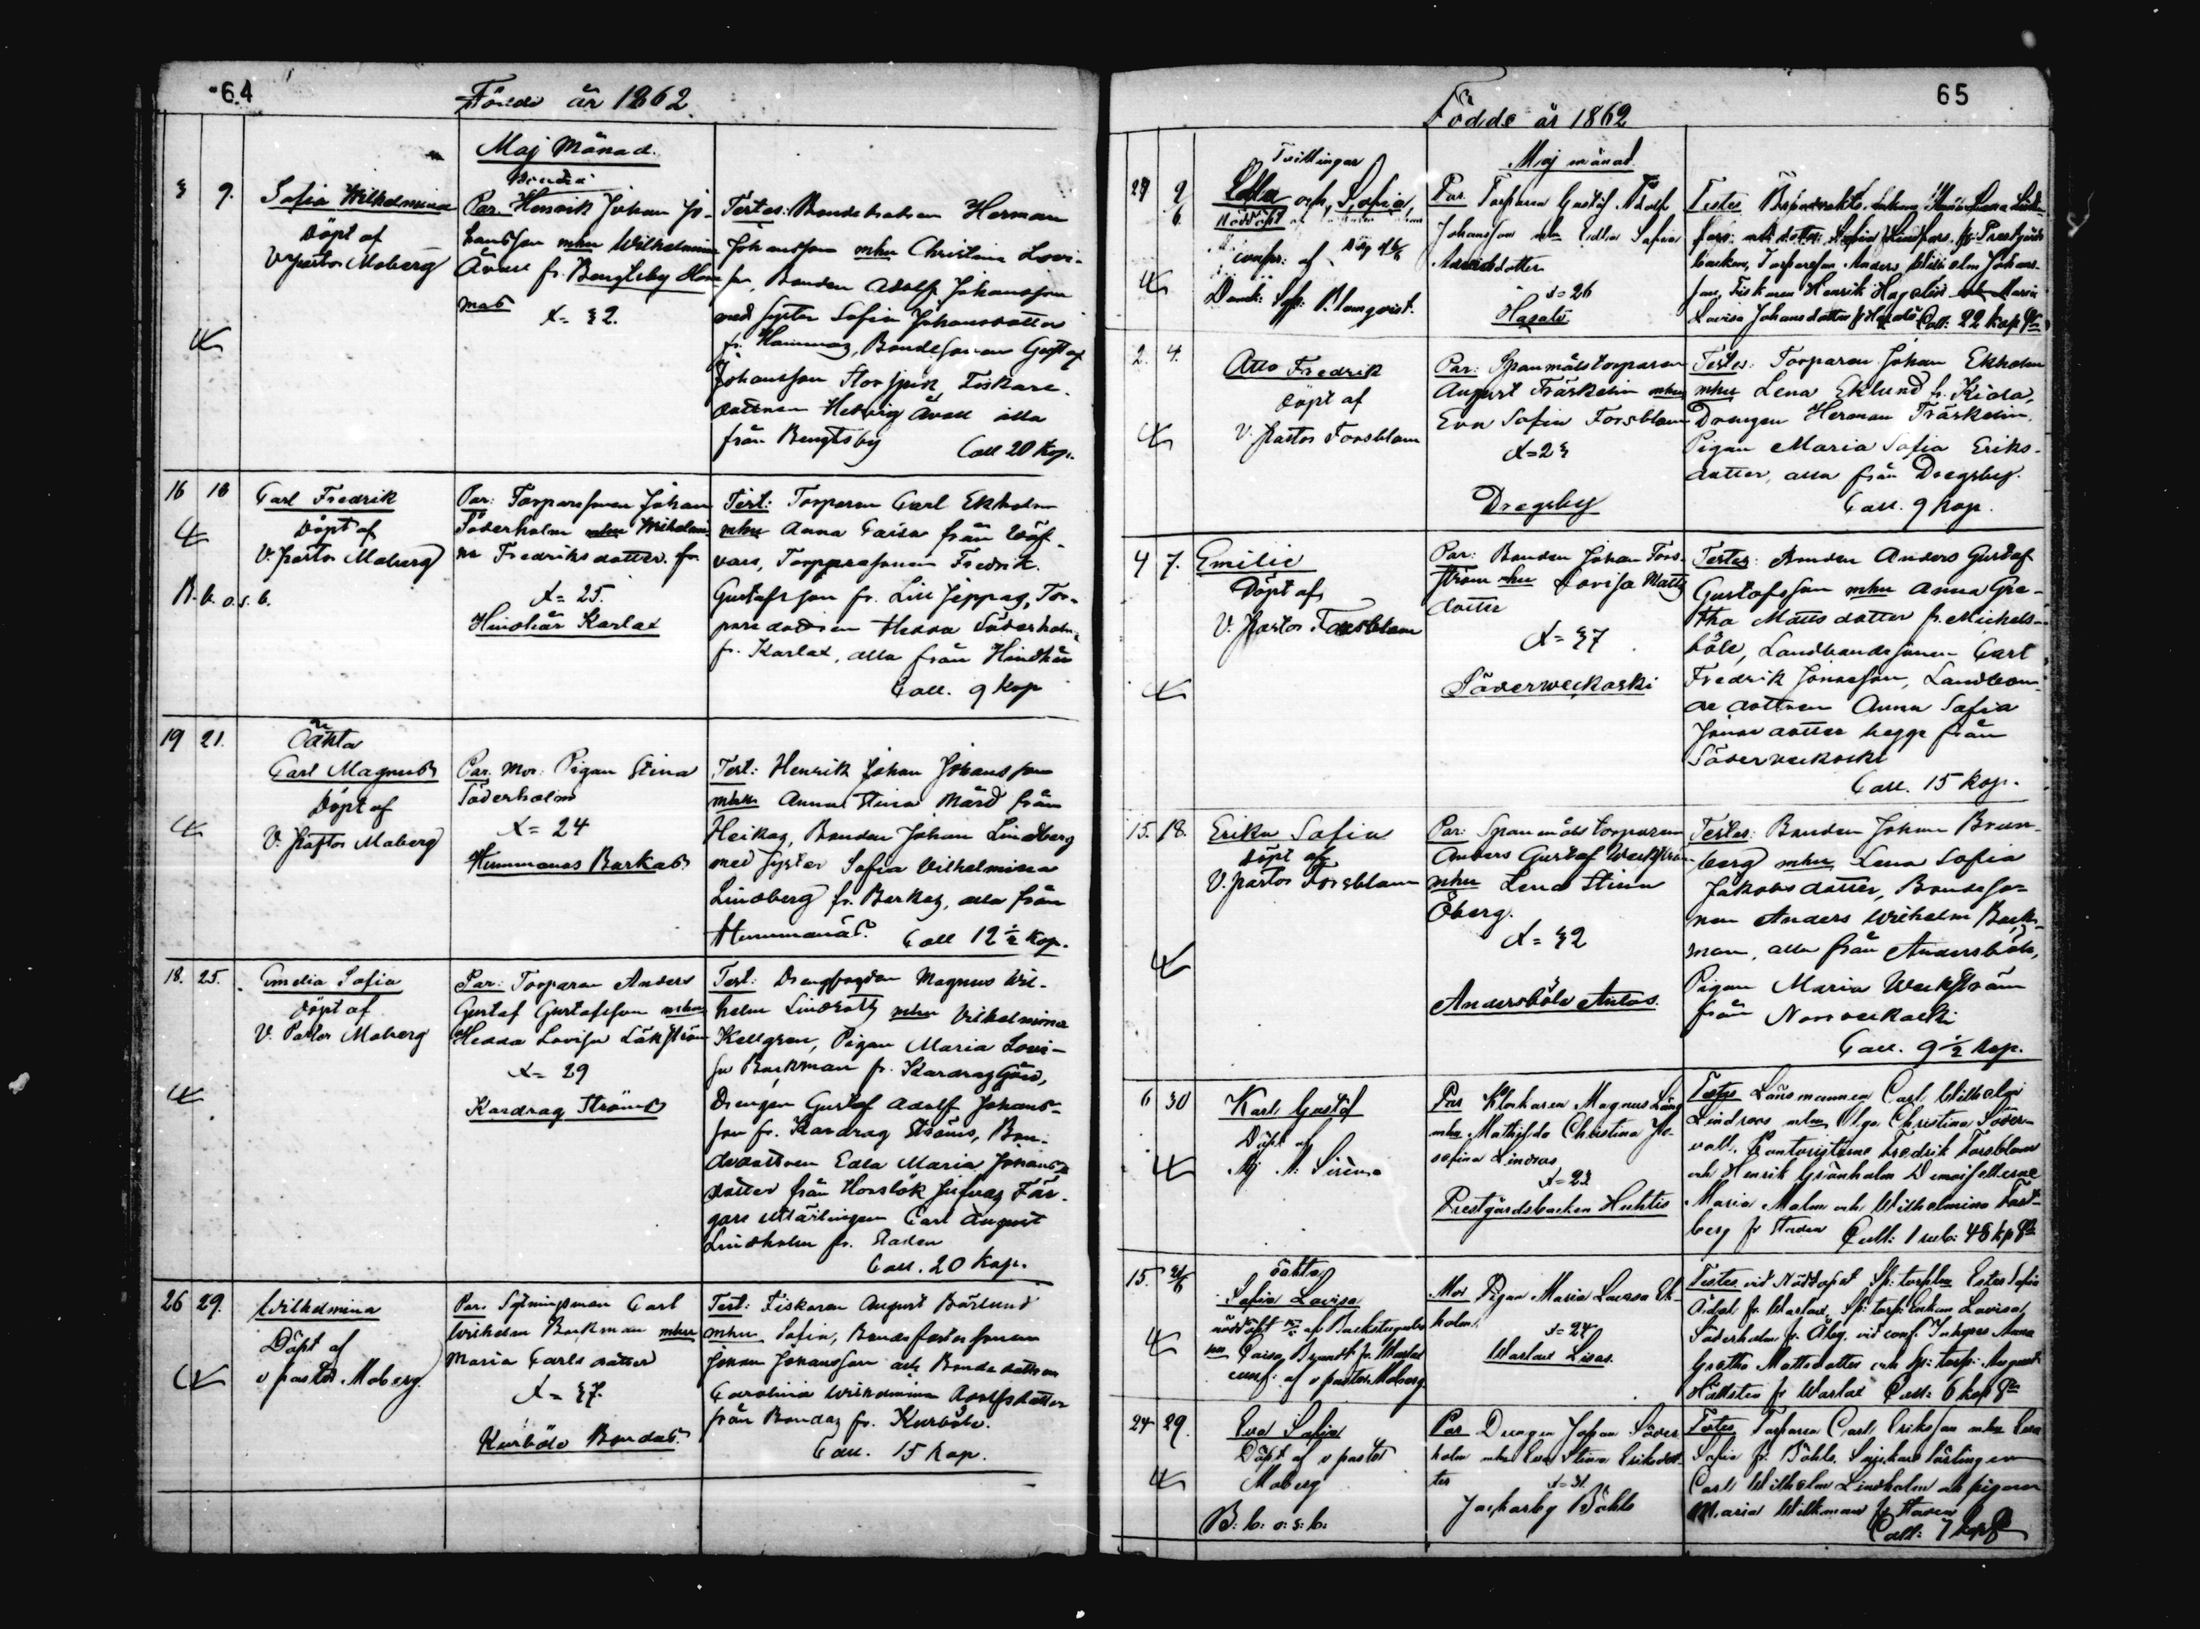 64
Födde år 1862.
Maj Månad.
3 9. Sofia Wilhelmina
Döpt af
V. Pastor Moberg
Bonden
Par. Henrik Johan Jo-
hansson mhu Wilhelmina
Ävall fr. Bengtsby Hom
mas
x= 32.
Testes: Bondehalvon Herman
Johansson mhu Christina Lovi-
sa, Bonden Adolf Johansson
med syster Sofia Johansdotter
fr. Hommas, Bondesonen Gustaf
Johansson Storspik, Fiskare-
dottren Hedvig Ävall alla
från Bengtsby Coll 20 Kop.
16 18 Carl Fredrik
Döpt af
V. Pastor Moberg
B. b. o. s. b.
Par: Torparsonen Johan
Söderholm mhu Wilhelmi-
na Fredriksdotter. fr.
x= 25.
Hindhår Karlax
Test: Torparen Carl Ekholm
mhu Anna Caisa från
vars, Torparesonen Fredrik
Gustafsson fr. Lill Jeppas, Tor-
paredottren Hedda Söderholm,
fr. Karlax, alla från Hindhår
Coll. 9 Kop
19 21. Oäkta
Carl Magnus
Döpt af
V. Pastor Moberg
Par. Mor: Pigan Stina
Söderholm
x= 24
Hummanas Barkas
Test: Henrik Johan Johansson
mhu Anna Stina Mård från
Heikas, Bonden Johan Lindberg
med syster Sofia Vilhelmina
Lindberg fr. Berkas, alla från
Hummanäs. Coll 12 ½ Kop.
18. 25. Emelia Sofia
Döpt af
V. Pastor Moberg
Par: Torparen Anders
Gustaf Gustafsson mhu
Hedda Lovisa Läkström
x= 29
Kardrag Ströms
Test: Drengfogden Magnus Wil-
helm Lindroth mhu Vilhelmina
Kellgren, Pigan Maria Lovi-
sa Backman fr. Kardrag Gård,
Drengen Gustaf Adolf Johans-
son fr. Kardrag Ströms, Bon-
dedottren Edla Maria Johans-
dotter från Horslök Fär-
gare Carl August
Lindholm fr. Staden
Coll. 20 Kop.
26 29. Wilhelmina
Döpt af
v pastor Moberg.
Par: Sytningsman Carl
Wilhelm Backman mhu
Maria Carlsdotter
x= 37.
Kurböle Bondas.
Test: Fiskaren August Bärlund
mhu Sofia, Bonde sonen
Johan Johansson och Bondedottren
Carolina Wilhelmina Adolfsdotter
från Bondas fr. Kurböle.
Coll. 15 Kop.
65
Födde år 1862
Maj månad.
29 2/6 Tvillingar
Edla och Sofia
Nöddöpt af
confir. af
Domk: Blomqvist.
Par Torparen Gustaf Adolf
Johansson mhu Edla Sofia
dotter
x= 26
Testes
och dotter Sofia Lindfors fr: Prestgårds
backen, Torparesn Anders Wilhelm Johans-
son, Fiskaren Henrik Maria
Lovisa Johansdotter Coll: 22 kop
2. 4. Otto Fredrik
Döpt af
V. Pastor Forsblom
Par: Spanmålstorparen
August Träskelin mhu
Eva Sofia Forsblom
x= 23
Dregsby
Testes: Torparen Johan Ekholm
mhu Lena Eklund fr. Kiala,
Drengen Herman Träskelin.
Pigan Maria Sofia Eriks-
dotter, alla från Dregsby.
Coll. 9 Kop.
4 7. Emilie
Döpt af
V. Pastor Forsblom
Par: Bonden Johan Fors-
ström mhu Lovisa Matts
dotter
x= 37
Söderveckoski
Testes: Bonden Anders Gustaf
Gustafsson mhu Anna Gre-
tha Mattsdotter fr. Michels-
böle, Landbondesonen Carl
Fredrik Jonasson, Landbon-
de dottren Anna Sofia
Jonasdotter begge från
Söderveckoski
Coll. 15 kop.
15. 18. Erika Sofia
Döpt af
V. pastor Forsblom
Par: Spanmålstorparen
Anders Gustaf Weckström
mhu Lena Stina
Öberg.
x= 32
Andersböle Antas.
Testes: Bonden Johan Brun-
berg mhu Lena Sofia
Jakobsdotter, Bondeso-
nen Anders Wilhelm Back-
man, alla från Andersböle,
Pigan Maria Weckström
från Norrveckoski
Coll. 9 ½ kop.
6 30 Karl Gustaf
Döpt af
Mj M: Sirén
Par Klockaren Magnus Lång
mhu Mathilda Christina Jo-
sefina Lindros
x= 23
Prestgårdsbacken Huktis
Testes Länsmannen Carl Wilhelm
Lindroos mhu Olga Christina Söder-
vall, Kontoristerne Fredrik Forsblom
och Henrik Grönholm Demoisellerne
Maria Malm och Wilhelmina
berg fr Staden Coll: 1 rub: 48 kop
15. 21/6 oäkta
Sofia Lovisa
nöddöpt af Backstuguhu
Caisa Brandt fr. Warlax
conf: af v pastor Moberg
Mor Pigan Maria Lovisa Ek-
holm
x= 24
Warlax Lisas.
Testes vid Nöddopet Sp: torphu Ester Sofia
fr Warlax, Sp: torp: Enkan Lovisa
Söderholm fr. vid conf. Inhyses Anna
Gretha Mattsdotter och Sp: torp: August
Hällsten fr Warlax Coll: 6 kop
24 29. Eva Sofia
Döpt af v pastor
Moberg
B: b: o: s: b:
Par Drengen Johan Söder
holm mhu Eva Stina Eriksdot-
ter
x= 31
Jackarby Böhls
Testes Torparen Carl Eriksson mhu Eva
Sofia fr. Böhls, lärlingen
Carl Wilhelm Lindholm och pigan
Maria Wilkman fr Staden
Coll: 7 kop